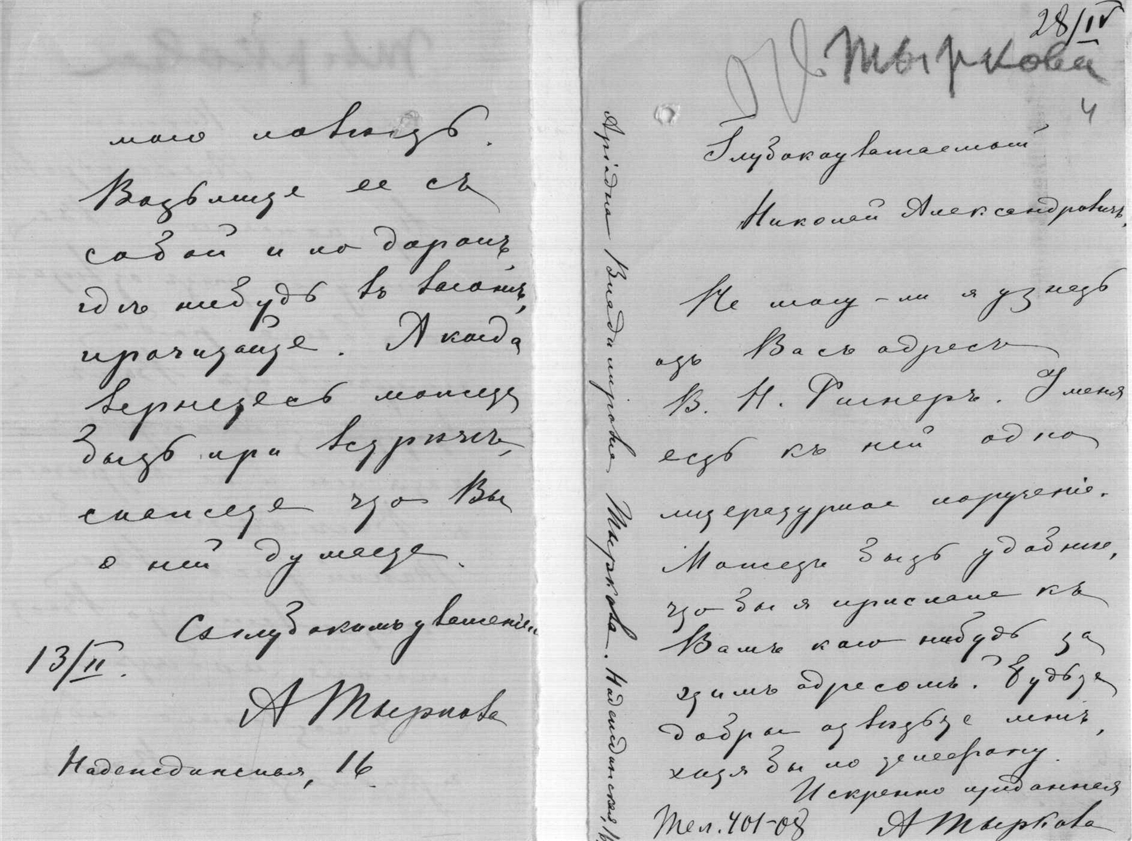 мою повѣсть.
Возьмите ее съ
собой и по дорогѣ,
гдѣ нибудь въ вагонѣ,
прочитайте. А когда
вернетесь можетъ
быть при встрѣчѣ,
скажете что Вы
о ней думаете.
Съ глубокимъ уваженіемъ
13/II.
А Тыркова
Надеждинская, 16
28/IV
Тырковой
4
Глубокоуважаемый
Николай Александровичъ,
Не могу-ли я узнать
отъ Васъ адресъ
В. Н. Фигнеръ. У меня
есть къ ней одно
литературное порученіе.
Можетъ быть удобнѣе,
что бы я прислала къ
Вамъ кого нибудь за
этимъ адресомъ. Будьте
добры отвѣтьте мнѣ,
хотя бы по телефону.
Искренно преданная
А Тыркова
Тел. 401-08
Аріадна Владимировна Тыркова. Надеждинская, 16